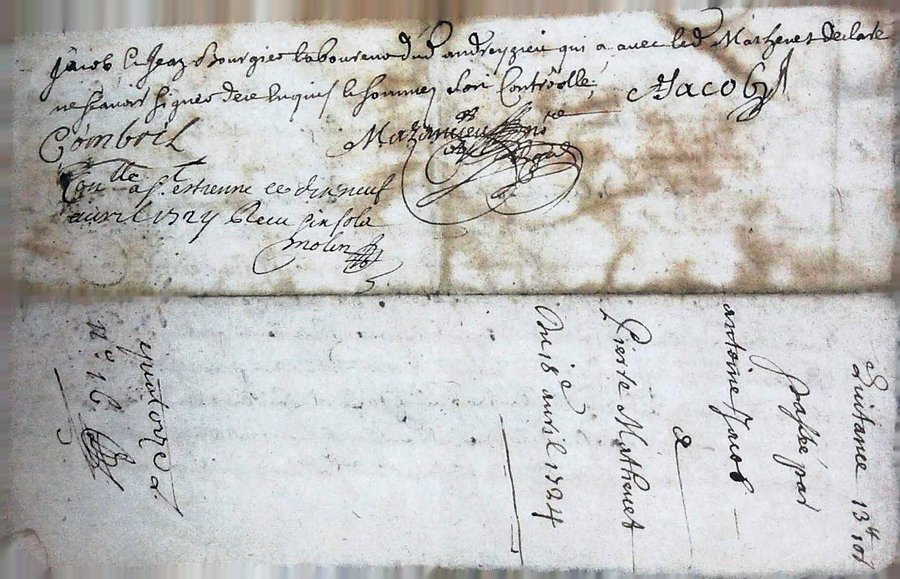 Jacob & Jean Bourgier laboureur dud andrezieu qui a avec led Mathenet declaré
ne scavoir signer de ce enquis & sommes soit Controlle
AJacob
Combril
Mazenieu
Con^lle a S^t estienne ce dixneuf
avril 1724 Receu six sols
molin
Quitance 13^# 10^s
passée par
antoine Jacob
a
Pierre Mathenet
Du 18^e avril 1724
n° 16